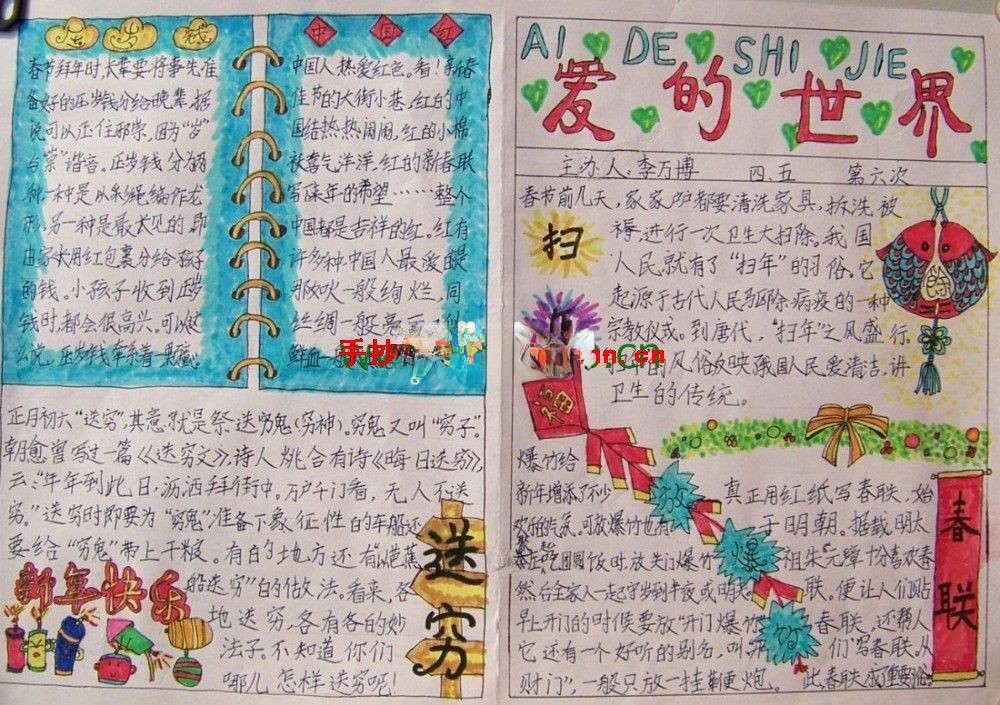 压岁钱
春节拜年时,长辈要将事先准
备好的压岁钱分给晚辈,据
说可以压住邪祟,因为“岁”
与“祟”谐音。压岁钱分为两
种,一种是以彩绳编作龙
形,另一种是最常见的,即
由家长用红包裹分给孩子
的钱。小孩子收到压岁
钱时,都会很高兴。可以这
么说,压岁钱牵系着一颗颗
中国红
中国人热爱红色。看!新春
佳节的大街小巷,红的中
国结热热闹闹,红的小棉
袄喜气洋洋,红的新春联
写来年的希望……整个
中国都是吉祥的红。红有
许多种,中国人最爱的是
那火一般绚烂,同
丝绸一般亮丽,似
鲜血一般
手抄
.cn
正月初六“送穷”,其意就是祭送穷鬼(穷神)。穷鬼又叫“穷子”。
朝愈曾写过一篇《送穷文》,诗人姚合有诗《晦日送穷》,
云:“年年到此日,沥洒拜街中。万户千门看,无人不送
穷。”送穷时即要为“穷鬼”准备下象征性的车船还
要给“穷鬼”带上干粮。有的地方还有“芭蕉
船送穷”的做法。看来,各
地送穷,各有各的妙
法子。不知道你们
哪儿怎样送穷呢!
送穷
新年快乐
AI DE SHI JIE
爱的世界
主办人:李万博 四.五 第六次
扫
春节前几天,家家户户都要清洗家具,拆洗被
褥,进行一次卫生大扫除。我国
人民就有了“扫年”的习俗。它
起源于古代人民驱除病疫的一种
宗教仪式。到唐代,“扫年”之风盛行。
的风俗反映我国人民爱清洁,讲
卫生的传统。
福
放爆竹
爆竹给
新年增添了不少
欢乐的气氛。可放爆竹也有
吃团圆饭时放关门爆竹
然后全家人一起守岁到半夜或明天
早上开门的时候要放“开门爆竹
它还有一个好听的别名,叫
财门”,一般只放一挂鞭炮。
真正用红纸写春联,始
于明朝。据载,明太
祖朱元璋十分喜欢春
联,便让人们贴
春联,还帮人
们写春联,从
此,春联成了重要
春联